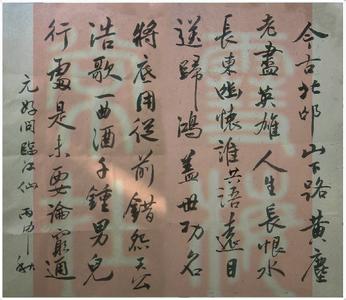 今古北邙山下路黃塵
老盡英雄人生長恨水
長東幽懷誰共語遠目
送歸鴻蓋世功名
將底用從前錯怨天公
浩歌一曲酒千鍾男兒
行處是未要論窮通
元好問臨江仙 丙申秋